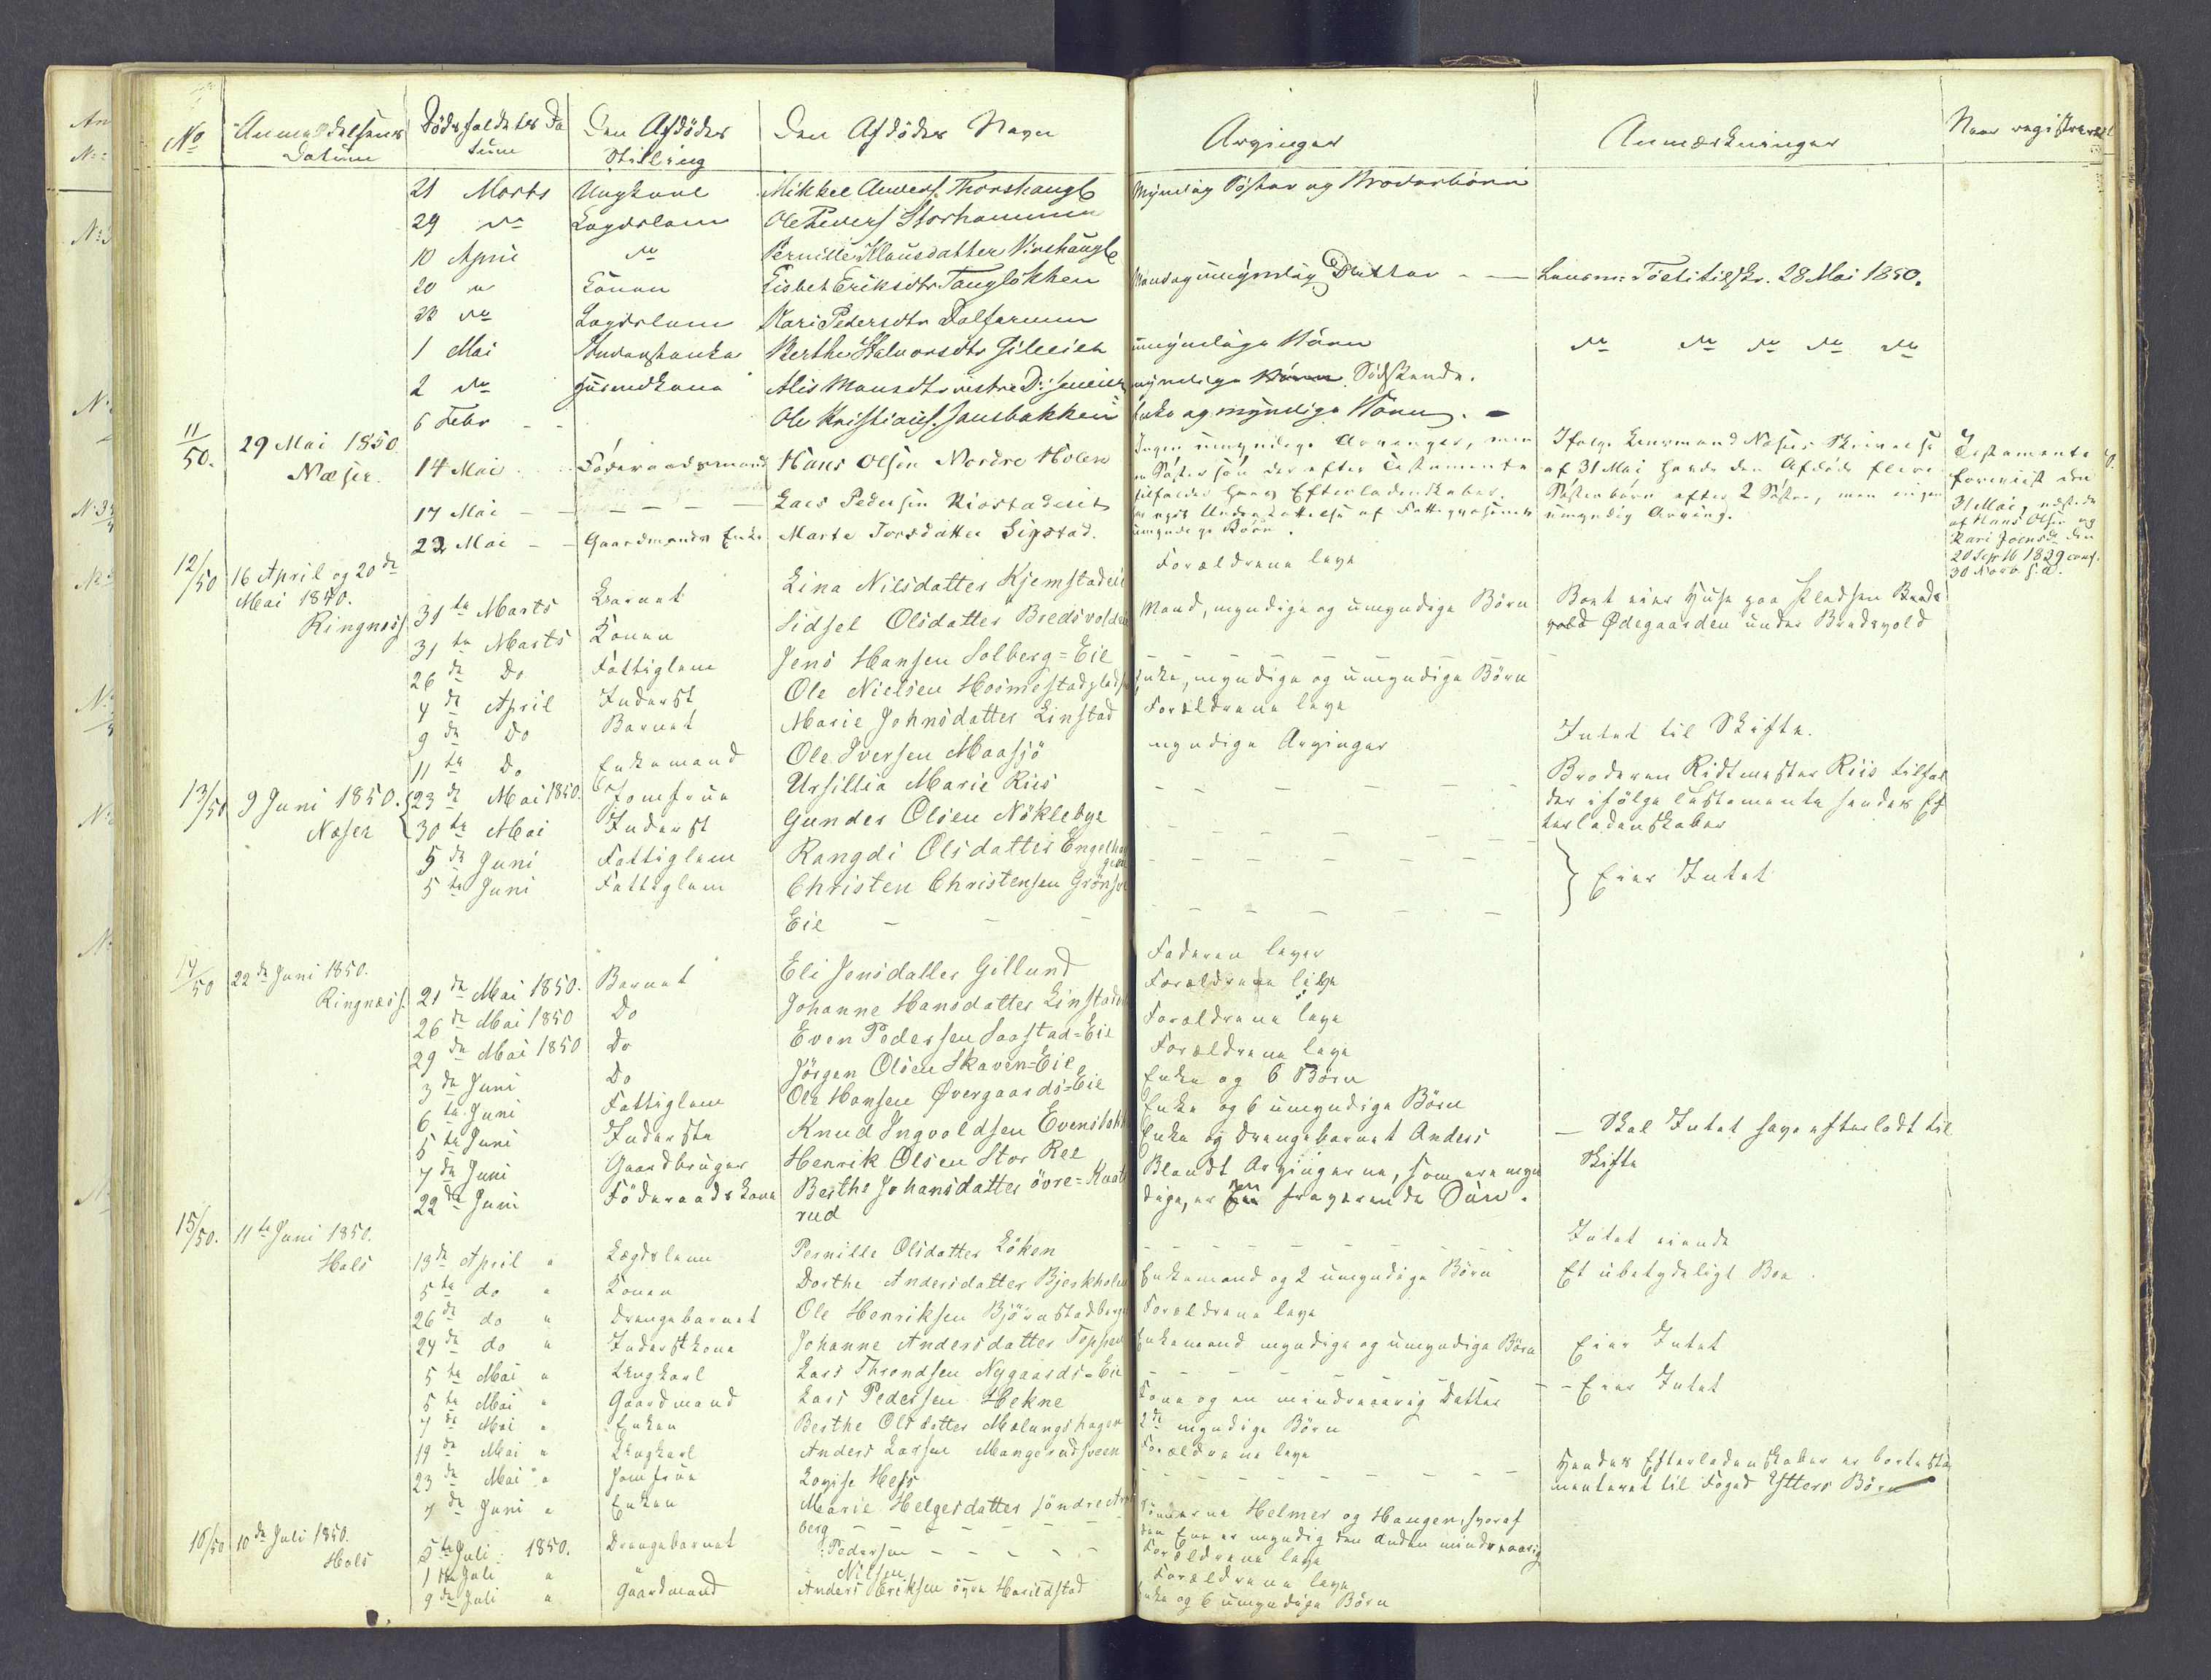 No Anmeldelsens Datum Dødsfaldets Datum Den Afdödes Stilling Den Afdödes Navn Arvinger Anmærkninger Naar registreret
21 Marts Ungkarl Mikkel Anders. Thorshaugb Myndig Söster og Broderbörn
29 do Lægdslem Ole Peders Storhammer
10 April do Pernille Klausdatter Virshaugb
20 " Konen Lisbet Eriksdtr Tangløkken Mand og umyndig Datter - Lensm: Töeti tilskr. 28 Mai 1850.
23 do Lægdslem Kari Pedersdtr Dalfarmen
1 Mai Inderstenke Berthe Halvorsdtr Gileeier umyndige Börn do do do do do
2 do Huusmdkone Alis Monsdtr vestre myndige Börn Sødskende.
6 Febr - - Ole Kristians. Jensbakken Enke og myndige Börn. -
11/50. 29 Mai 1850 Næser.
14 Mai Föderaadsmand Hans Olsen Nordre Holen Ingen umyndige Arvinger, men en Söstersön der efter Testamente tilfalder hans Efterladenskaber. Ifølge Lensmand Næsers Skrivelse af 31 Mai havde den Afdöde flere Sösterbörn efter 2 Söstre, men ingen umyndig Arving. Testamente foreviist den 31 Mai, udstedt af Hans Olsen og Kari Joensd. den 20 Septb 1829 conf. 30 Novb s. A.
17 Mai - - - - - Lars Pedersen Kiostadeiet umyndige Börn.
22 Mai - - Gaardmands Enke Marte Torsdatter Sigstad.
12/50 16 April og 20de Mai 1840. Ringnæs
31te Marts Barnet Lina Nilsdatter Kjemstadeie Forældrene leve
31te Marts Konen Sidsel Olsdatter Bredsvoldeie Mand, myndige og umyndige Börn Boet eier Huse paa Pladsen Bredsvold Ødegaarden under Bredsvold
26de Do Fattiglem Jens Hansen Solberg=Eie - - - -
4de April Inderst Ole Nielsen Hosmestadplads Enke, myndige og umyndige Börn
9de Do Barnet Marie Johnsdatter Linstad Forældrene leve
11te Do Enkemand Ole Iversen Maasjö myndige Arvinger Intet til Skifte.
13/50 9 Juni 1850. Næser
23de Mai 1850. Jomfrue Ursillia Marie Riis - - - - - Broderen Ridtmester Riis tilfalder ifölge Testamente hendes Efterladenskaber
30te Mai Inderst Gunder Olsen Nöklebye - - - - -
5te Juni Fattiglem Rangdi Olsdatter Engelhau - - - - - } Eier Intet
5te Juni Fattiglem Christen Christensen Grönsve Eie - - - - - - -
14/50 22de Juni 1850. Ringnæs
21de Mai 1850. Barnet Eli Jensdatter Gillund Faderen lever
26de Mai 1850 Do Johanne Hansdatter Linstad Forældrene leve
29de Mai 1850 Do Even Pedersen Saastad=Eie Forældrene leve
3de Juni Do Jörgen Olsen Skaven=Eie Forældrene leve
6te Juni Fattiglem Ole Hansen Øvergaards=Eie Enke og 6 Börn
5te Juni Inderste Knud Ingvoldsen Evensbakk Enke og 6 umyndige Börn
7de Juni Gaardbruger Henrik Olsen Stor Ree Enke og Drengebarnet Anders - Skal Intet have efterladt til Skifte
22de Juni Föderaadskone Berthe Johansdatter övre=Kvaterud Blandt Arvingerne, som ere myndige, er En fraværende Sön.
15/50. 11te Juni 1850. Hals
13de April " Lægdslem Pernille Olsdatter Löken - - - - - - - Intet eiende
5te do " Konen Dorthe Andersdatter Bjerkholen Enkemand og 2 umyndige Börn Et ubetydeligt Boe
26de do " Drengebarnet Ole Henriksen Björnstadberg Forældrene leve
24de do " Inderstkone Johanne Andersdatter Toppen Enkemand myndige og umyndige Börn Eier Intet
5te Mai " Ungkarl Lars Throndsen Nygaards=Eie - - - - - - - Eier Intet
5te Mai " Gaardmand Lars Pedersen Hekne Kone og en mindreaarig Datter
7de Mai " Enken Berthe Olsdatter Malungshagen 2de myndige Börn
19de Mai " Ungkarl Anders Larsen Mangerudsveen Forældrene leve
23de Mai " Jomfrue Lovise Hess - - - - - - Hendes Efterladenskaber er bortestamenteret til Foged Ytters Börn
7de Juni " Enken Marie Helgesdatter söndre berg - - - - - Sönnerne Helmer og Haagen, hvoraf den Ene er myndig den Anden mindreaarig
16/50 10de Juli 1850. Hals
5te Juli 1850. Drengebarnet : Pedersen - - - - Forældrene leve
1ste Juli " " Nilsen Forældrene leve
9de Juli " Gaardmand Anders Eriksen övre Harildstad Enke og 6 umyndige Börn